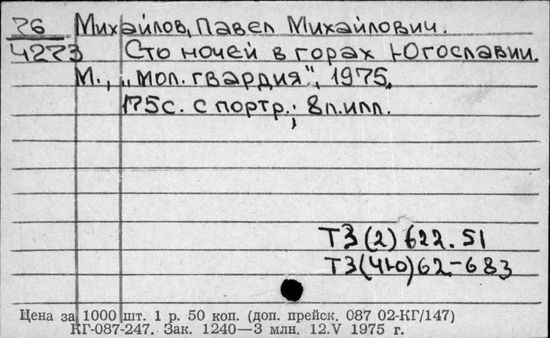 76 Михайлов, Павел Михайлович.
4273 Сто ночей в горах Югославии.
М., „Мол. гвардия", 1975.
175с. с портр.; 8л.илл.
Т3(2)622.51
Т3(4Ю)62-683
Цена за 1000 шт. 1 р. 50 коп. (доп. прейск. 087 02-КГ/147)
КГ-087-247. Зак. 1240—3 млн. 12.V 1975 г.